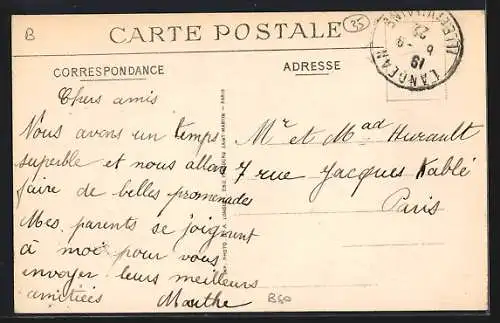 B
CARTE POSTALE
35
CORRESPONDANCE
ADRESSE
LANGEAN
ILLE ET VILAINE
19
6 - 9
22
Chers amis
Nous avons un temps
superbe et nous allons
faire de belles promenades
Mes parents se joignent
à moi pour vous
envoyer leurs meilleurs
amitiées Mauthe
Mr et Mad Hurault
7 rue Jacques Kablé
Paris
B50